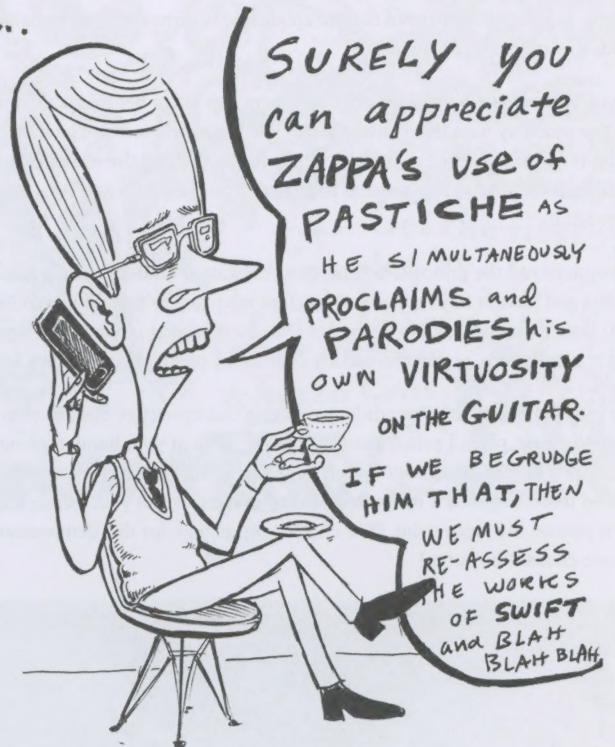 ...
SURELY YOU
can appreciate
ZAPPA's use of
PASTICHE AS
HE SIMULTANEOUSLY
PROCLAIMS and
PARODIES his
OWN VIRTUOSITY
ON THE GUITAR.
IF WE BEGRUDGE
HIM THAT, THEN
WE MUST
RE-ASSESS
THE WORKS
OF SWIFT
and BLAH
BLAH BLAH